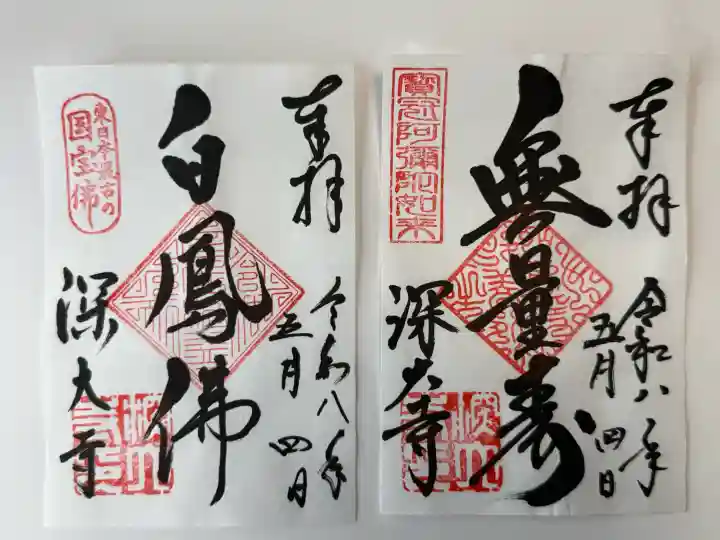 奉拝
令和八年
五月四日
白鳳佛
東日本最古の
国宝佛
深大寺
奉拝
令和八年
五月四日
無量寿
寶冠阿彌陀如来
深大寺